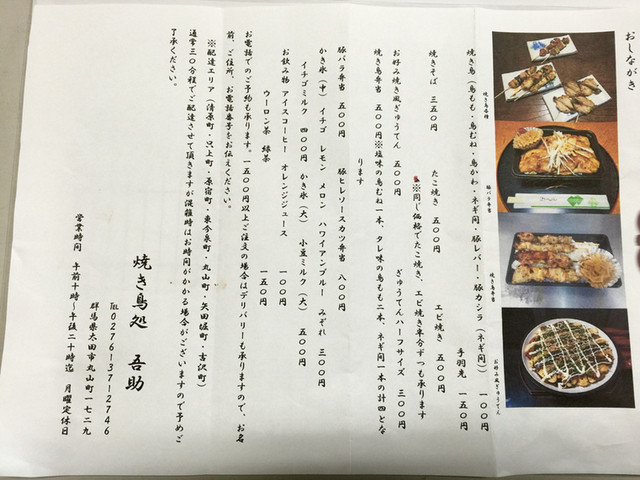 おしながき
焼き鳥各種
豚バラ弁当
焼き鳥弁当
お好み風ぎゅうてん
焼き鳥（鳥もも・鳥むね・鳥かわ・ネギ間・豚レバー・豚カシラ（ネギ間）） 一〇〇円
手羽先 一五〇円
焼きそば 三五〇円 たこ焼き 五〇〇円 エビ焼き 五〇〇円
※同じ価格でたこ焼き、エビ焼き半分ずつも承ります
お好み焼き風ぎゅうてん 五〇〇円 ぎゅうてんハーフサイズ 三〇〇円
焼き鳥弁当 五〇〇円※塩味の鳥むね一本、タレ味の鳥もも二本、ネギ間一本の計四本とな
ります
豚バラ弁当 五〇〇円 豚ヒレソースカツ弁当 八〇〇円
かき氷（中） イチゴ レモン メロン ハワイアンブルー みぞれ 三〇〇円
イチゴミルク 四〇〇円 かき氷（大） 小豆ミルク（大） 五〇〇円
お飲み物 アイスコーヒー オレンジジュース 一〇〇円
ウーロン茶 緑茶 一五〇円
お電話でのご予約も承ります。一五〇〇円以上ご注文の場合はデリバリーも承りますので、お名
前、ご住所、お電話番号をお伝えください。
※配達エリア（清原町・只上町・原宿町・東今泉町・丸山町・矢田堀町・吉沢町）
通常三〇分程でご配達させて頂きますが混雑時はお時間がかかる場合がございますので予めご
了承ください。
焼き鳥処 吾助
TEL 0276-37-2746
群馬県太田市丸山町一七二九
営業時間 午前十時～午後二十時迄 月曜定休日